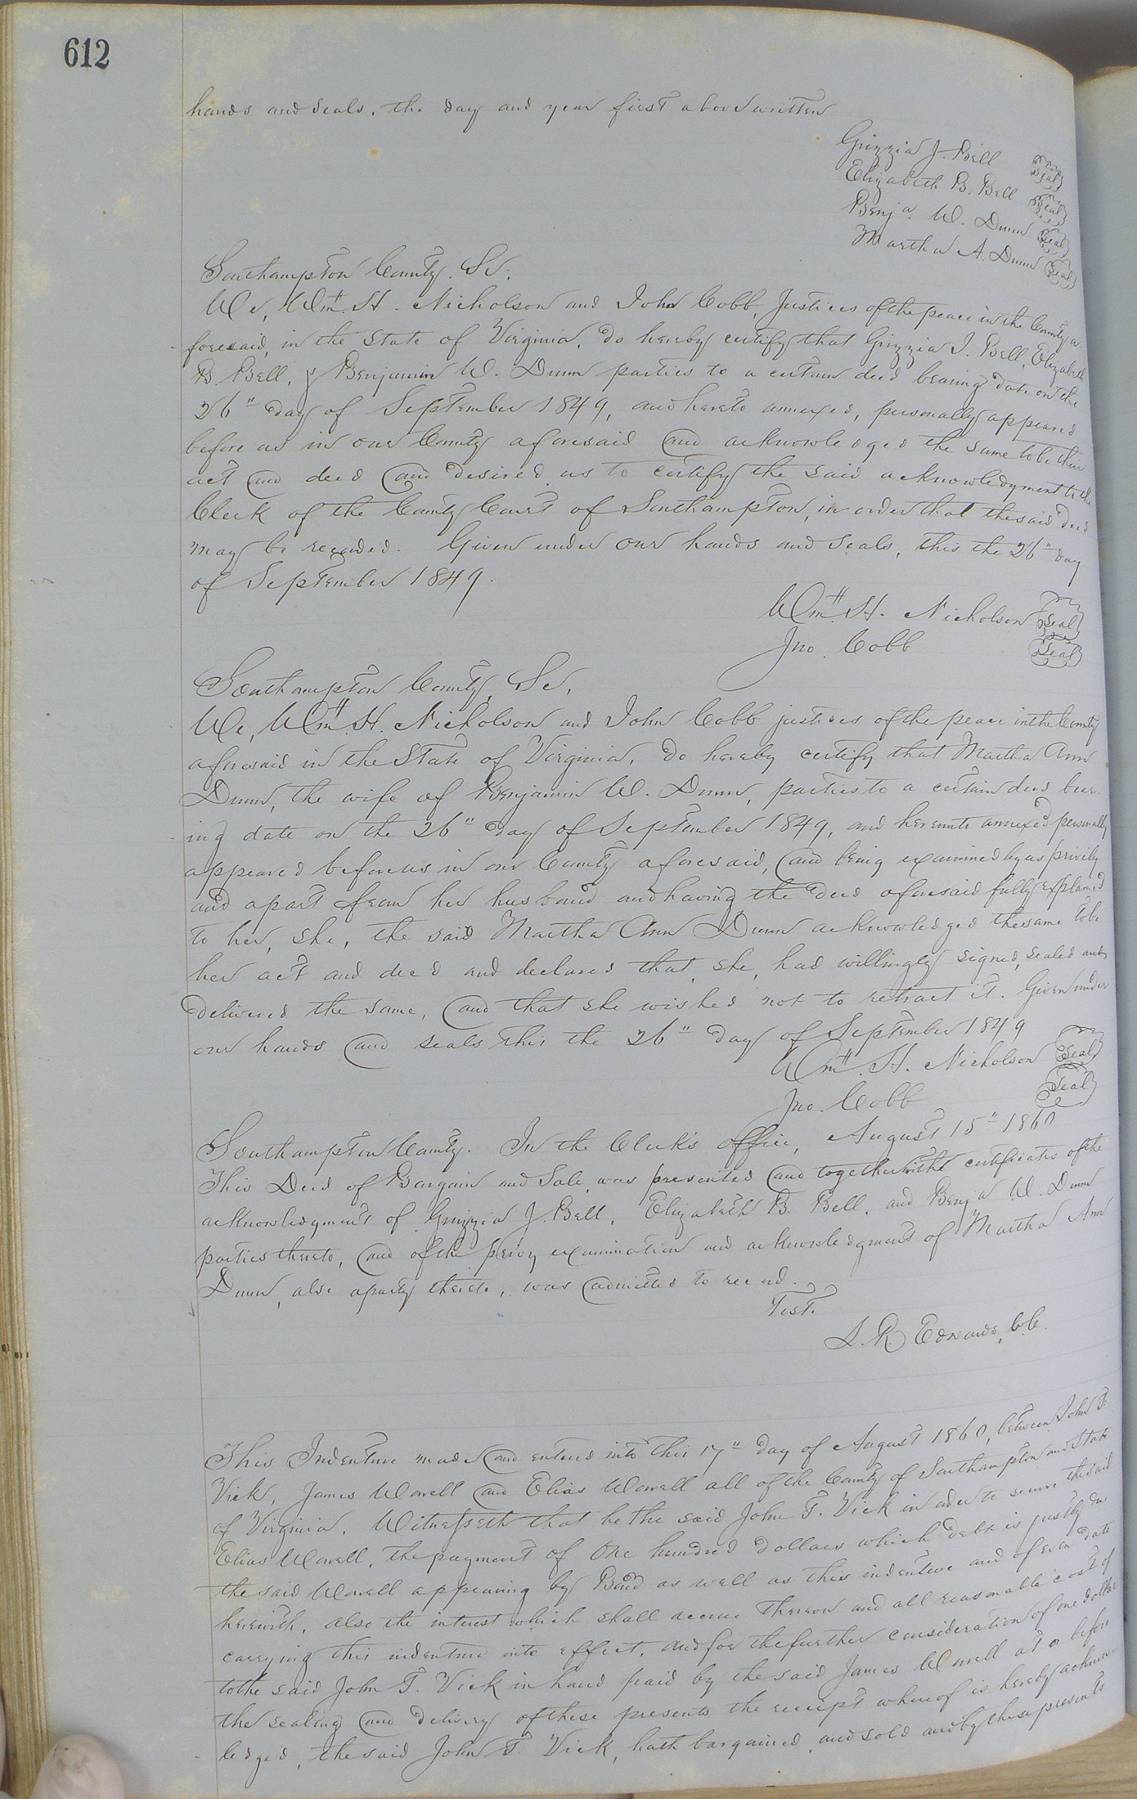 612
hands and seals, the day and year first above written
Grizzia J. Bell Seal
Elizabeth B. Bell Seal
Benja. W. Dunn Seal
Martha A. Dunn Seal
Southampton County. Sc.
We, Wm. H. Nicholson and John Cobb, Justices of the peace in the County a-
foresaid, in the State of Virginia, do hereby certify that Grizzia J. Bell, Elizabeth
B. Bell, & Benjamin W. Dunn parties to a certain deed bearing date on the
26" day of September 1849, and hereto annexed, personally appeared
before us in our County aforesaid and acknowledged the same to be their
act and deed and desired us to certify the said acknowledgment to the
Clerk of the County Court of Southampton, in order that the said deed
may be recorded. Given under our hands and seals, this the 26" day
of September 1849.
Wm. H. Nicholson Seal
Jno. Cobb Seal
Southampton County, Sc.
We, Wm. H. Nicholson and John Cobb justices of the peace in the County
aforesaid in the State of Virginia, do hereby certify that Martha Ann
Dunn, the wife of Benjamin W. Dunn, parties to a certain deed bear-
ing date on the 26" day of September 1849, and hereunto annexed personally
appeared before us in our County aforesaid, and being examined by us privily
and apart from her husband and having the deed aforesaid fully explained
to her, she, the said Martha Ann Dunn acknowledged the same to be
her act and deed and declared that she had willingly signed, sealed and
delivered the same, and that she wished not to retract it. Given under
our hands and seals this the 26" day of September 1849
Wm. H. Nicholson Seal
Jno. Cobb Seal
Southampton County. In the Clerk's office, August 15" 1860
This Deed of Bargain and Sale was presented and together with the certificates of the
acknowledgment of Grizzia J. Bell, Elizabeth B. Bell, and Benja W. Dunn
parties thereto, and of the privy examination and acknowledgment of Martha Ann
Dunn, also a party thereto, was admitted to record.
Test.
L. R. Edwards, C.C.
This Indenture made and entered into this 17" day of August 1860, between John T.
Vick, James Worrell and Elias Worrell all of the County of Southampton and State
of Virginia. Witnesseth that he the said John T. Vick in order to secure the said
Elias Worrell, the payment of One hundred dollars which debt is justly due
the said Worrell appearing by Bond as well as this indenture and of even date
herewith, also the interest which shall accrue thereon and all reasonable cost of
carrying this indenture into effect, and for the further consideration of one dollar
to the said John T. Vick in hand paid by the said James Worrell at or before
the sealing and delivery of these presents the receipt whereof is hereby acknow-
ledged, the said John T. Vick, hath bargained and sold and by these presents